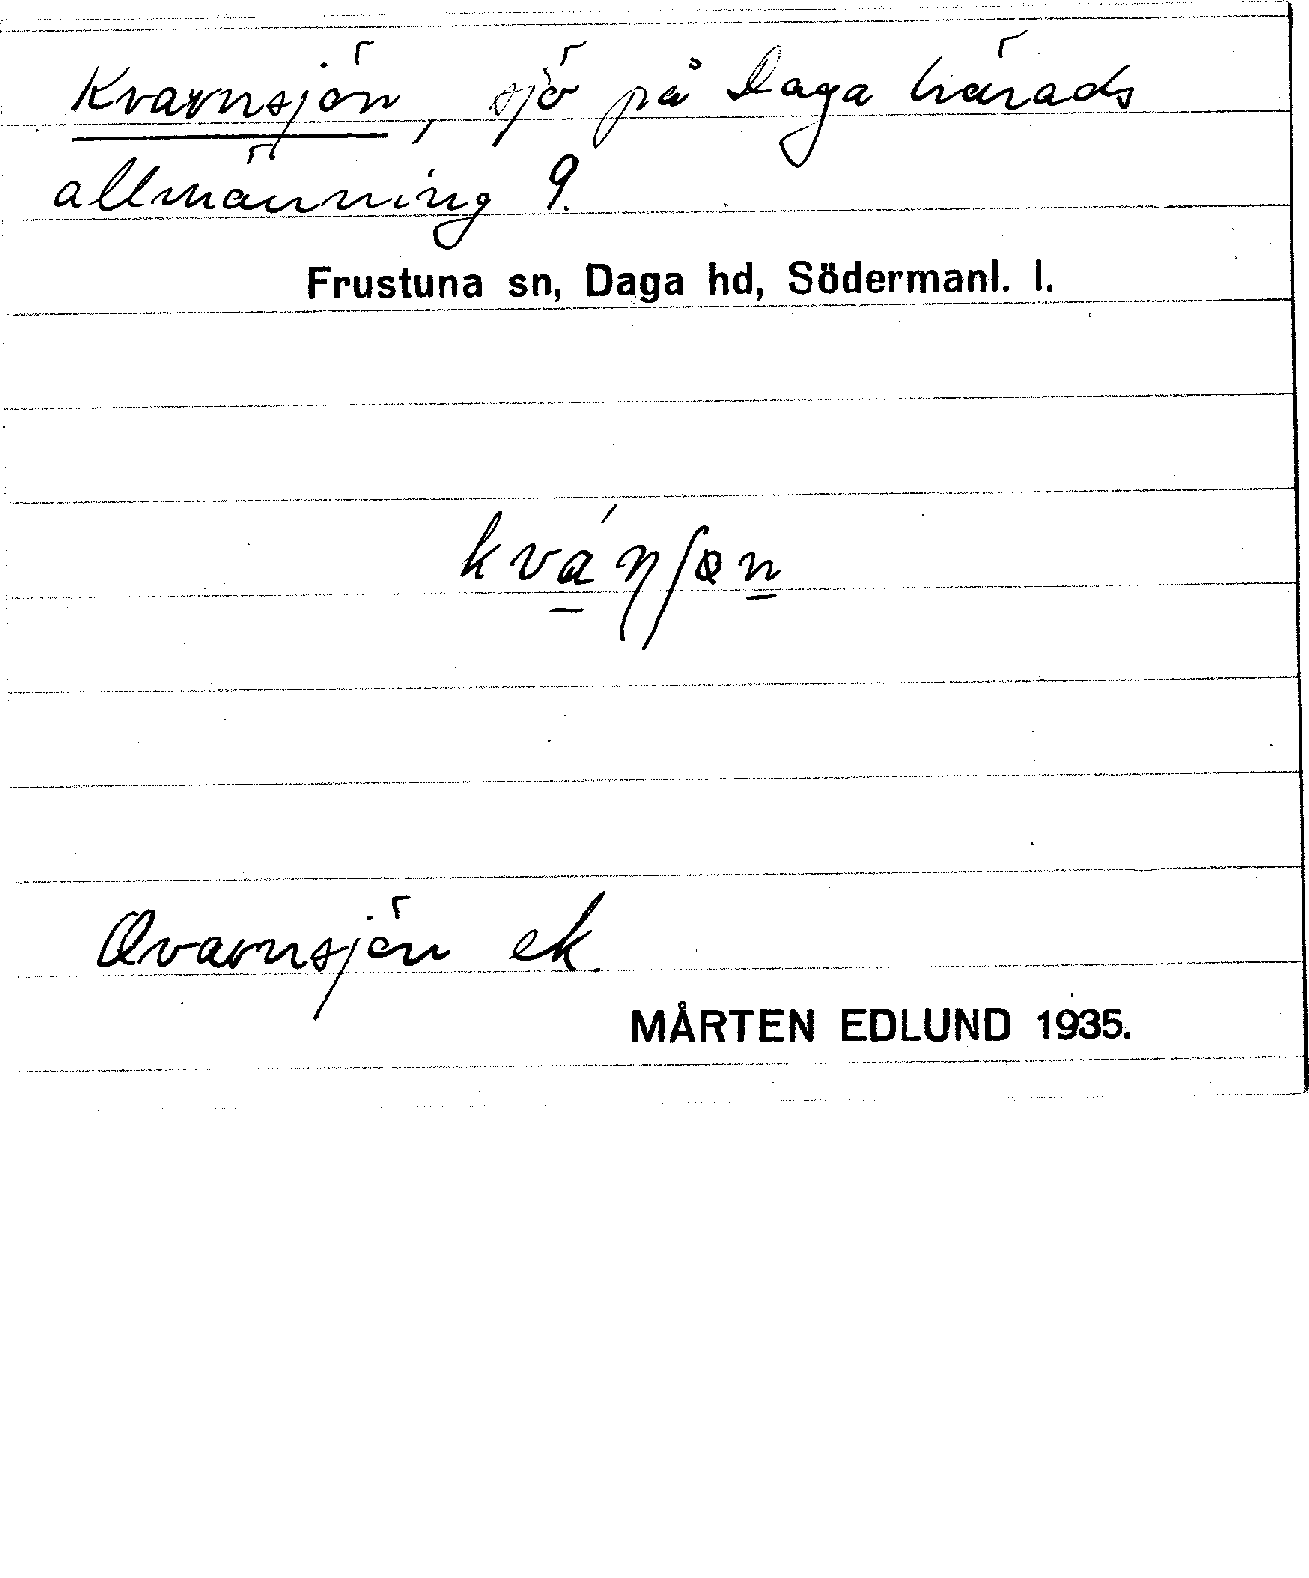 Kvarnsjön, sjö på Daga härads
allmänning 9.
Frustuna sn, Daga hd, Södermanl. l.
Qvarnsjön ek.
MÅRTEN EDLUND 1935.